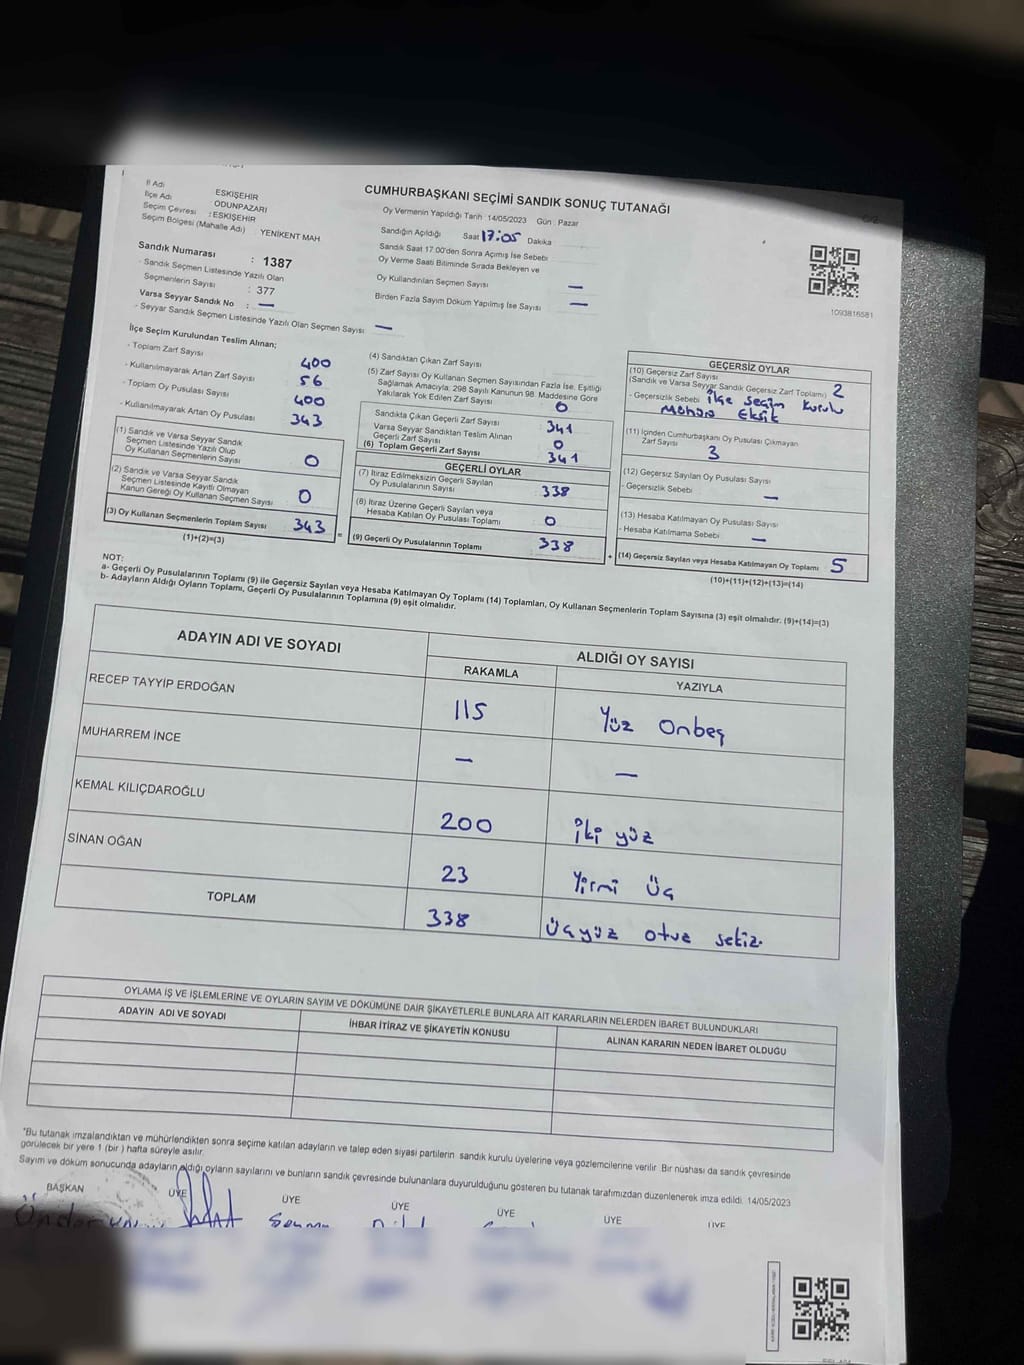 İl Adı ESKİŞEHİR
İlçe Adı ODUNPAZARI
Seçim Çevresi : ESKİŞEHİR
Seçim Bölgesi (Mahalle Adı) YENİKENT MAH
CUMHURBAŞKANI SEÇİMİ SANDIK SONUÇ TUTANAĞI
Oy Vermenin Yapıldığı Tarih : 14/05/2023 Gün : Pazar
Sandığın Açıldığı Saat 17:05 Dakika
Sandık Saat 17:00'den Sonra Açımış İse Sebebi
Oy Verme Saati Bitiminde Sırada Bekleyen ve
Oy Kullandırılan Seçmen Sayısı —
Birden Fazla Sayım Döküm Yapılmış İse Sayısı —
1093816581
Sandık Numarası : 1387
- Sandık Seçmen Listesinde Yazılı Olan
Seçmenlerin Sayısı : 377
Varsa Seyyar Sandık No : —
- Seyyar Sandık Seçmen Listesinde Yazılı Olan Seçmen Sayısı —
İlçe Seçim Kurulundan Teslim Alınan;
- Toplam Zarf Sayısı 400
- Kullanılmayarak Artan Zarf Sayısı 56
- Toplam Oy Pusulası Sayısı 400
- Kullanılmayarak Artan Oy Pusulası 343
(1) Sandık ve Varsa Seyyar Sandık
Seçmen Listesinde Yazılı Olup
Oy Kullanan Seçmenlerin Sayısı 0
(2) Sandık ve Varsa Seyyar Sandık
Seçmen Listesinde Kayıtlı Olmayan
Kanun Gereği Oy Kullanan Seçmen Sayısı 0
(3) Oy Kullanan Seçmenlerin Toplam Sayısı 343
(1)+(2)=(3)
=
(4) Sandıktan Çıkan Zarf Sayısı
(5) Zarf Sayısı Oy Kullanan Seçmen Sayısından Fazla İse, Eşitliği
Sağlamak Amacıyla; 298 Sayılı Kanunun 98. Maddesine Göre
Yakılarak Yok Edilen Zarf Sayısı 0
Sandıkta Çıkan Geçerli Zarf Sayısı 341
Varsa Seyyar Sandıktan Teslim Alınan
Geçerli Zarf Sayısı 0
(6) Toplam Geçerli Zarf Sayısı 341
GEÇERLİ OYLAR
(7) İtiraz Edilmeksizin Geçerli Sayılan
Oy Pusulalarının Sayısı 338
(8) İtiraz Üzerine Geçerli Sayılan veya
Hesaba Katılan Oy Pusulası Toplamı 0
(9) Geçerli Oy Pusulalarının Toplamı 338
+
GEÇERSİZ OYLAR
(10) Geçersiz Zarf Sayısı
(Sandık ve Varsa Seyyar Sandık Geçersiz Zarf Toplamı) 2
- Geçersizlik Sebebi İlçe Seçim Kurulu
Mührü Eksik
(11) İçinden Cumhurbaşkanı Oy Pusulası Çıkmayan
Zarf Sayısı 3
(12) Geçersiz Sayılan Oy Pusulası Sayısı
- Geçersizlik Sebebi —
(13) Hesaba Katılmayan Oy Pusulası Sayısı
- Hesaba Katılmama Sebebi —
(14) Geçersiz Sayılan veya Hesaba Katılmayan Oy Toplamı 5
(10)+(11)+(12)+(13)=(14)
NOT:
a- Geçerli Oy Pusulalarının Toplamı (9) ile Geçersiz Sayılan veya Hesaba Katılmayan Oy Toplamı (14) Toplamları, Oy Kullanan Seçmenlerin Toplam Sayısına (3) eşit olmalıdır. (9)+(14)=(3)
b- Adayların Aldığı Oyların Toplamı, Geçerli Oy Pusulalarının Toplamına (9) eşit olmalıdır.
ADAYIN ADI VE SOYADI ALDIĞI OY SAYISI
RAKAMLA YAZIYLA
RECEP TAYYİP ERDOĞAN 115 Yüz Onbeş
MUHARREM İNCE — —
KEMAL KILIÇDAROĞLU 200 İki yüz
SİNAN OĞAN 23 Yirmi Üç
TOPLAM 338 Üçyüz otuz sekiz
OYLAMA İŞ VE İŞLEMLERİNE VE OYLARIN SAYIM VE DÖKÜMÜNE DAİR ŞİKAYETLERLE BUNLARA AİT KARARLARIN NELERDEN İBARET BULUNDUKLARI
ADAYIN ADI VE SOYADI İHBAR İTİRAZ VE ŞİKAYETİN KONUSU ALINAN KARARIN NEDEN İBARET OLDUĞU
*Bu tutanak imzalandıktan ve mühürlendikten sonra seçime katılan adayların ve talep eden siyasi partilerin sandık kurulu üyelerine veya gözlemcilerine verilir. Bir nüshası da sandık çevresinde
görülecek bir yere 1 (bir) hafta süreyle asılır.
Sayım ve döküm sonucunda adayların aldığı oyların sayılarını ve bunların sandık çevresinde bulunanlara duyurulduğunu gösteren bu tutanak tarafımızdan düzenlenerek imza edildi. 14/05/2023
BAŞKAN ÜYE ÜYE ÜYE ÜYE ÜYE ÜYE